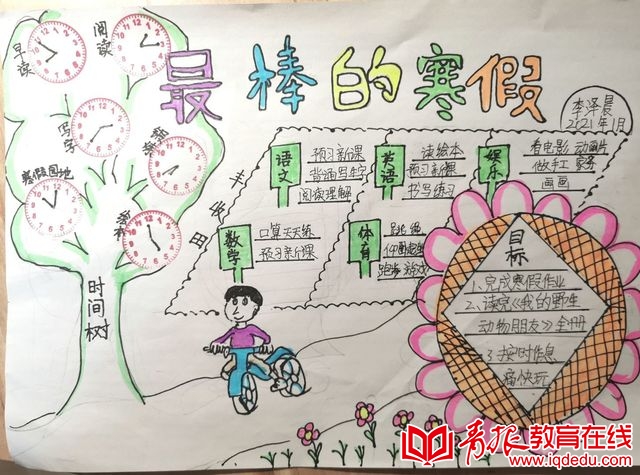 最棒的寒假
李泽晨
2021年1月
早读
阅读
写字
寒假园地
时间树
丰收田
语文
预习新课
背诵写生字
阅读理解
英语
读绘本
预习新课
书写练习
娱乐
看电影 动画片
做手工 家务
画画
数学
口算天天练
预习新课
体育
跳绳
仰卧起坐
跑步 游戏
目标
1、完成寒假作业
2、读完《我的野生
动物朋友》全册
3、按时作息
痛快玩
青报教育在线
www.iqdedu.com